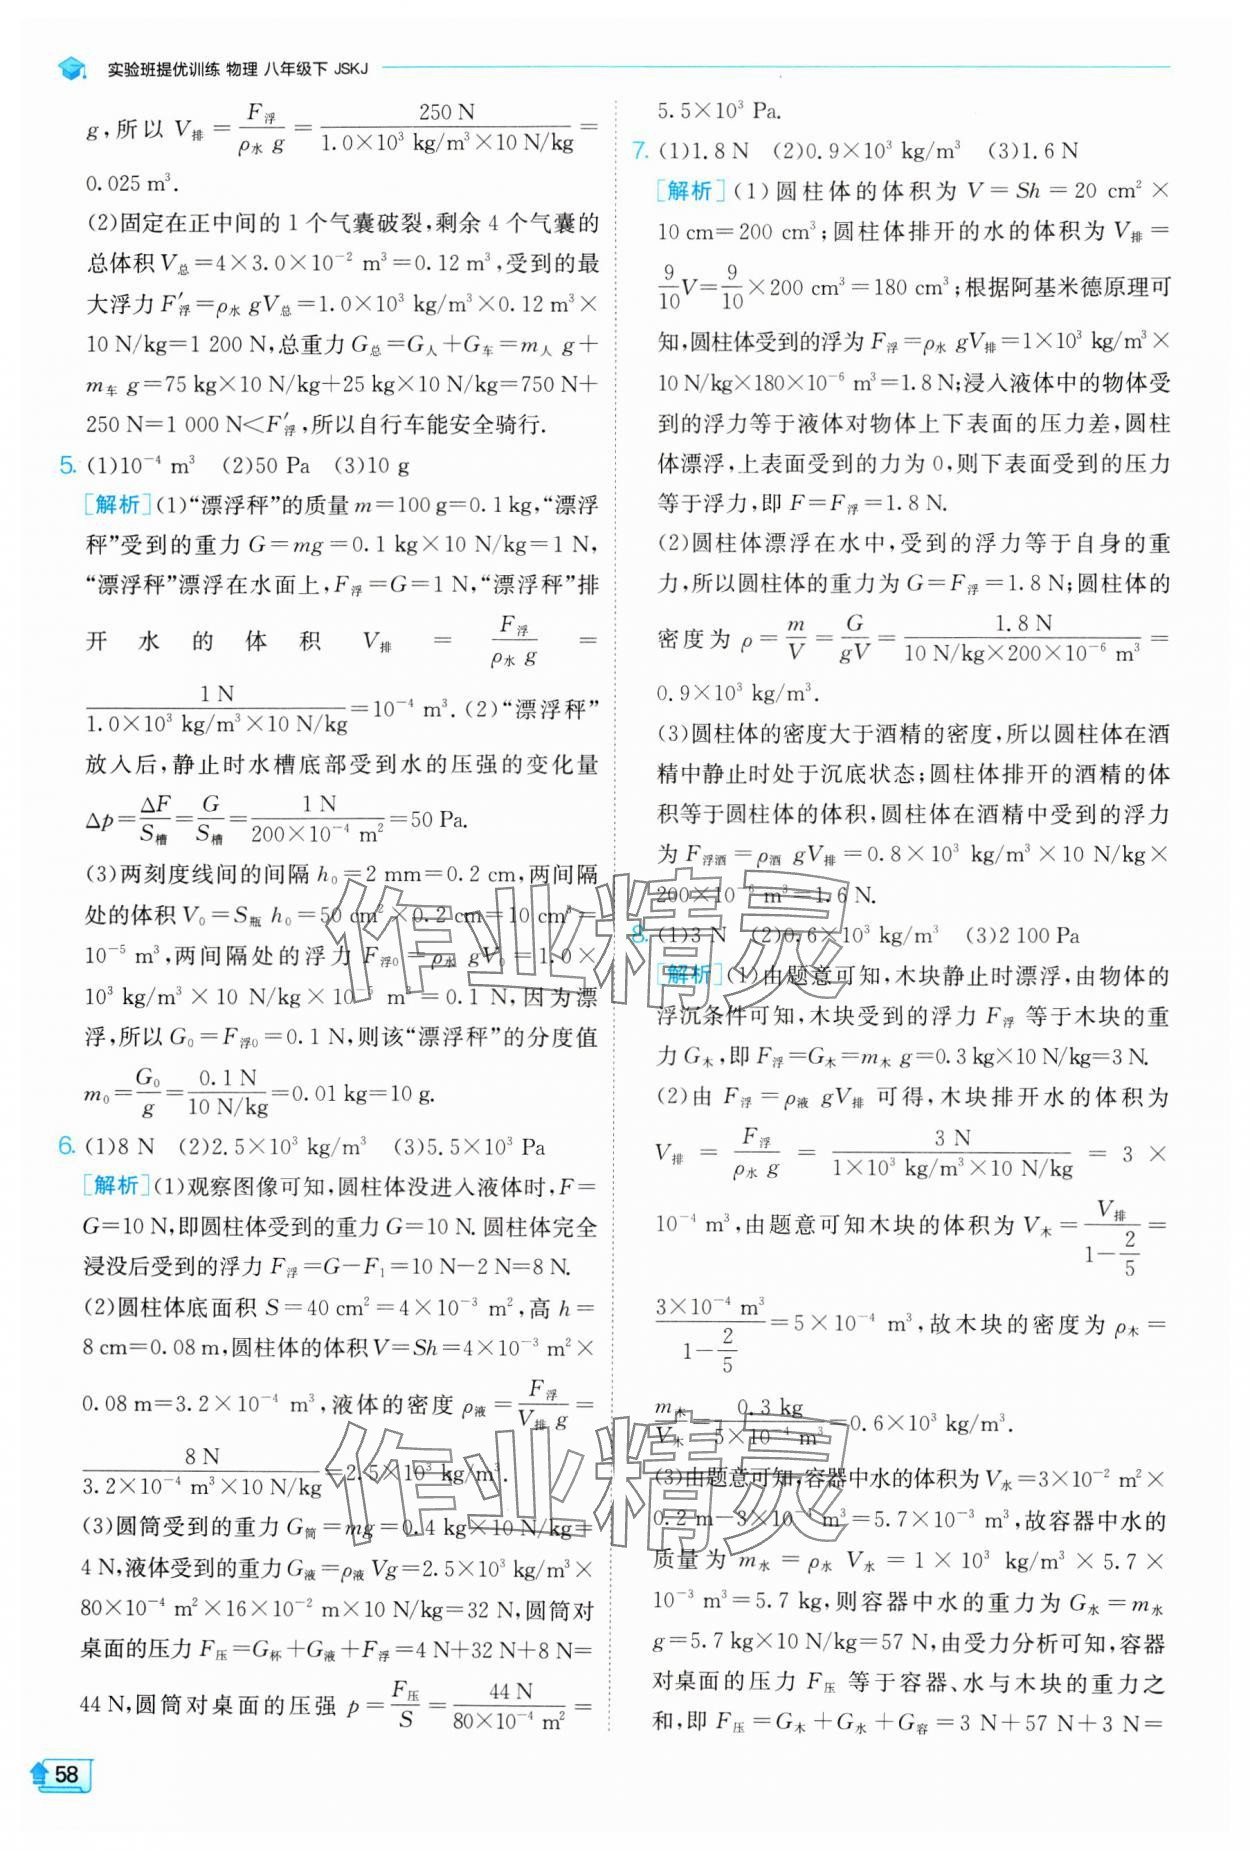 实验班提优训练 物理 八年级下 JSKJ
g,所以 V排=F浮/(ρ水 g)=250 N/(1.0×10³ kg/m³×10 N/kg)=
0.025 m³.
(2)固定在正中间的 1 个气囊破裂,剩余 4 个气囊的
总体积 V总=4×3.0×10⁻² m³=0.12 m³,受到的最
大浮力 F′浮=ρ水 gV总=1.0×10³ kg/m³×0.12 m³×
10 N/kg=1 200 N,总重力 G总=G人+G车=m人 g+
m车 g=75 kg×10 N/kg+25 kg×10 N/kg=750 N+
250 N=1 000 N<F′浮,所以自行车能安全骑行.
5. (1)10⁻⁴ m³ (2)50 Pa (3)10 g
[解析](1)“漂浮秤”的质量 m=100 g=0.1 kg,“漂浮
秤”受到的重力 G=mg=0.1 kg×10 N/kg=1 N,
“漂浮秤”漂浮在水面上,F浮=G=1 N,“漂浮秤”排
开水的体积 V排=F浮/(ρ水 g)=
1 N/(1.0×10³ kg/m³×10 N/kg)=10⁻⁴ m³.(2)“漂浮秤”
放入后,静止时水槽底部受到水的压强的变化量
Δp=ΔF/S槽=G/S槽=1 N/(200×10⁻⁴ m²)=50 Pa.
(3)两刻度线间的间隔 h₀=2 mm=0.2 cm,两间隔
处的体积 V₀=S瓶 h₀=50 cm²×0.2 cm=10 cm³=
10⁻⁵ m³,两间隔处的浮力 F浮0=ρ水 gV₀=1.0×
10³ kg/m³×10 N/kg×10⁻⁵ m³=0.1 N,因为漂
浮,所以 G₀=F浮0=0.1 N,则该“漂浮秤”的分度值
m₀=G₀/g=0.1 N/(10 N/kg)=0.01 kg=10 g.
6. (1)8 N (2)2.5×10³ kg/m³ (3)5.5×10³ Pa
[解析](1)观察图像可知,圆柱体没进入液体时,F=
G=10 N,即圆柱体受到的重力 G=10 N.圆柱体完全
浸没后受到的浮力 F浮=G-F₁=10 N-2 N=8 N.
(2)圆柱体底面积 S=40 cm²=4×10⁻³ m²,高 h=
8 cm=0.08 m,圆柱体的体积 V=Sh=4×10⁻³ m²×
0.08 m=3.2×10⁻⁴ m³,液体的密度 ρ液=F浮/(V排 g)=
8 N/(3.2×10⁻⁴ m³×10 N/kg)=2.5×10³ kg/m³.
(3)圆筒受到的重力 G筒=mg=0.4 kg×10 N/kg=
4 N,液体受到的重力 G液=ρ液 Vg=2.5×10³ kg/m³×
80×10⁻⁴ m²×16×10⁻² m×10 N/kg=32 N,圆筒对
桌面的压力 F压=G杯+G液+F浮=4 N+32 N+8 N=
44 N,圆筒对桌面的压强 p=F压/S=44 N/(80×10⁻⁴ m²)=
58
5.5×10³ Pa.
7. (1)1.8 N (2)0.9×10³ kg/m³ (3)1.6 N
[解析](1)圆柱体的体积为 V=Sh=20 cm²×
10 cm=200 cm³;圆柱体排开的水的体积为 V排=
9/10V=9/10×200 cm³=180 cm³;根据阿基米德原理可
知,圆柱体受到的浮为 F浮=ρ水 gV排=1×10³ kg/m³×
10 N/kg×180×10⁻⁶ m³=1.8 N;浸入液体中的物体受
到的浮力等于液体对物体上下表面的压力差,圆柱
体漂浮,上表面受到的力为 0,则下表面受到的压力
等于浮力,即 F=F浮=1.8 N.
(2)圆柱体漂浮在水中,受到的浮力等于自身的重
力,所以圆柱体的重力为 G=F浮=1.8 N;圆柱体的
密度为 ρ=m/V=G/(gV)=1.8 N/(10 N/kg×200×10⁻⁶ m³)=
0.9×10³ kg/m³.
(3)圆柱体的密度大于酒精的密度,所以圆柱体在酒
精中静止时处于沉底状态;圆柱体排开的酒精的体
积等于圆柱体的体积,圆柱体在酒精中受到的浮力
为 F浮酒=ρ酒 gV排=0.8×10³ kg/m³×10 N/kg×
200×10⁻⁶ m³=1.6 N.
8. (1)3 N (2)0.6×10³ kg/m³ (3)2 100 Pa
[解析](1)由题意可知,木块静止时漂浮,由物体的
浮沉条件可知,木块受到的浮力 F浮 等于木块的重
力 G木,即 F浮=G木=m木 g=0.3 kg×10 N/kg=3 N.
(2)由 F浮=ρ液 gV排 可得,木块排开水的体积为
V排=F浮/(ρ水 g)=3 N/(1×10³ kg/m³×10 N/kg)=3×
10⁻⁴ m³,由题意可知木块的体积为 V木=V排/(1-2/5)=
3×10⁻⁴ m³/(1-2/5)=5×10⁻⁴ m³,故木块的密度为 ρ木=
m木/V木=0.3 kg/(5×10⁻⁴ m³)=0.6×10³ kg/m³.
(3)由题意可知,容器中水的体积为 V水=3×10⁻² m²×
0.2 m-3×10⁻⁴ m³=5.7×10⁻³ m³,故容器中水的
质量为 m水=ρ水 V水=1×10³ kg/m³×5.7×
10⁻³ m³=5.7 kg,则容器中水的重力为 G水=m水
g=5.7 kg×10 N/kg=57 N,由受力分析可知,容器
对桌面的压力 F压 等于容器、水与木块的重力之
和,即 F压=G木+G水+G容=3 N+57 N+3 N=
作业精灵
作业精灵